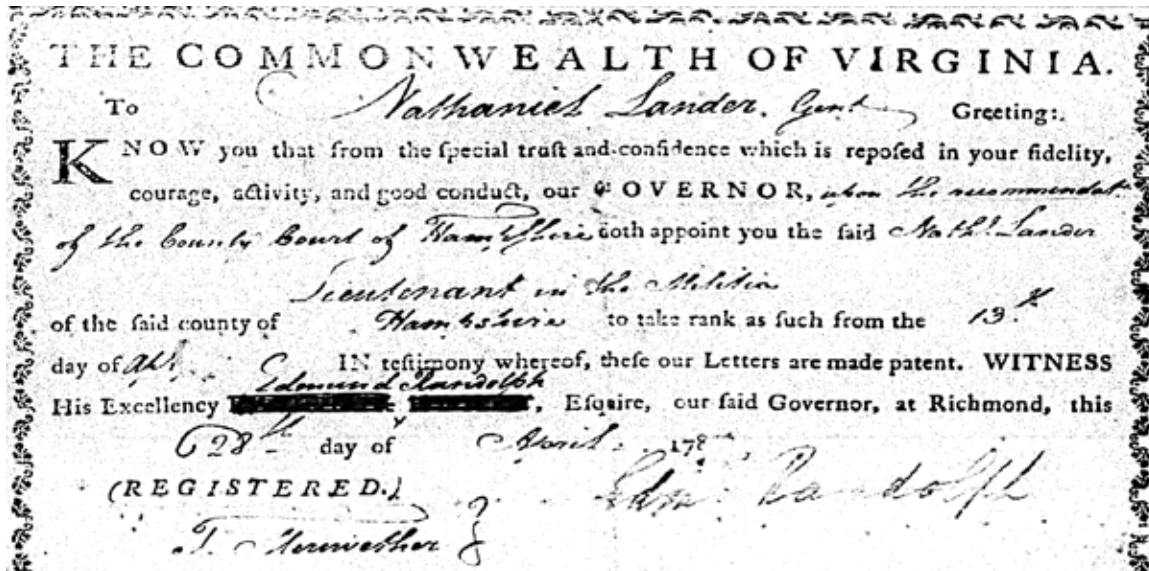 THE COMMONWEALTH OF VIRGINIA.
To Nathaniel Lander. Gent Greeting:
KNOW you that from the ſpecial truſt and confidence which is repoſed in your fidelity,
courage, activity, and good conduct, our GOVERNOR, upon the recommendat
of the County Court of Hampshire doth appoint you the ſaid Nathl Lander
Lieutenant in the Militia
of the ſaid county of Hampshire to take rank as ſuch from the 13th
day of IN teſtimony whereof, theſe our Letters are made patent. WITNESS
Edmund Randolph
His Excellency , Eſquire, our ſaid Governor, at Richmond, this
28th day of April 178
(REGISTERED.) Edm: Randolph
T. Meriwether